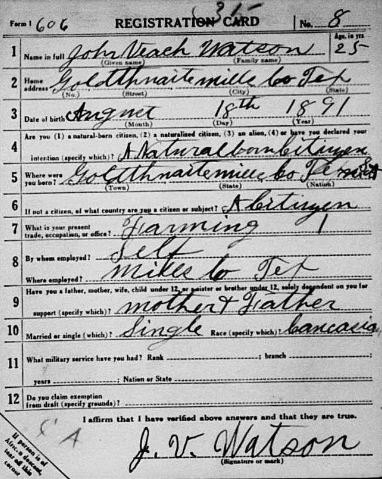 Form 1 606 REGISTRATION CARD (315 No. 8
1 Name in full John Veach Watson Age, in yrs 25
(Given name) (Family name)
2 Home address Goldthnaite mills Co Tex
(No.) (Street) (City) (State)
3 Date of birth August 18th 1891
(Month) (Day) (Year)
Are you (1) a natural-born citizen, (2) a naturalized citizen, (3) an alien, (4) or have you declared your
4 intention (specify which)? A Natural born Cituzen
5 Where were you born? Goldthnaite mills Co Tex
(Town) (State) (Nation)
6 If not a citizen, of what country are you a citizen or subject? A Cituzen
7 What is your present trade, occupation, or office? Farming 1
8 By whom employed? Self
Where employed? Mills Co Tex
Have you a father, mother, wife, child under 12, or a sister or brother under 12, solely dependent on you for
9 support (specify which)? mother & Father
10 Married or single (which)? Single Race (specify which)? Caucasia
11 What military service have you had? Rank ; branch ;
years ; Nation or State
12 Do you claim exemption from draft (specify grounds)?
I affirm that I have verified above answers and that they are true.
J. V. Watson
(Signature or mark)
If person is of African descent, tear off this corner